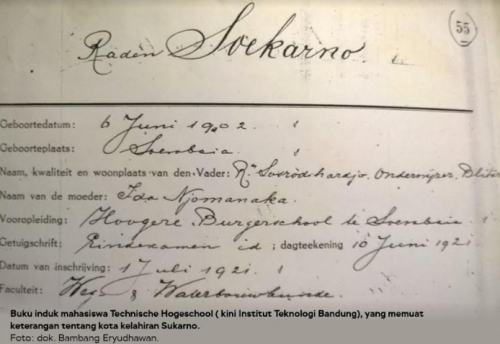 55
Raden Soekarno.
Geboortedatum: 6 Juni 1902.
Geboorteplaats: Soerabaia
Naam, kwaliteit en woonplaats van den Vader: Rn Sosrodihardjo, Onderwijzer, Blitar
Naam van de moeder: Ida Njomanaka.
Vooropleiding: Hoogere Burgerschool te Soerabaia
Getuigschrift: Eindexamen id; dagteekening 10 Juni 1921
Datum van inschrijving: 1 Juli 1921.
Faculteit: Weg & Waterbouwkunde.
Buku induk mahasiswa Technische Hogeschool ( kini Institut Teknologi Bandung), yang memuat
keterangan tentang kota kelahiran Sukarno.
Foto: dok. Bambang Eryudhawan.